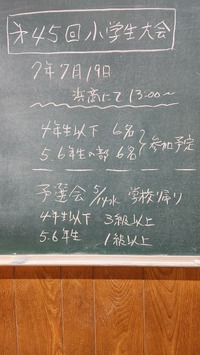 第45回小学生大会
7年7月19日
浜高にて 13:00〜
4年生以下 6名
5.6年生の部 6名 } 参加予定
予選会 5/14水 学校帰り
4年生以下 3級以上
5.6年生 1級以上